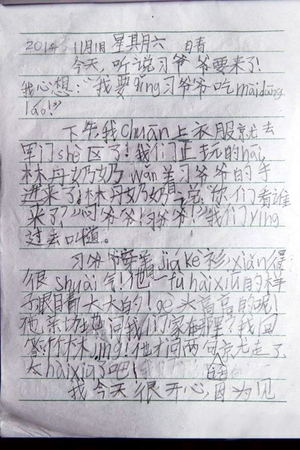 2014年 11月1日 星期六 晴
今天,听说习爷爷要来了!
我心想:"我要qǐng习爷爷吃màidāng
láo!"
下午我chuān上衣服就去
军门shè区了!我们正玩的hāi,
林丹奶奶wǎn着习爷爷的手
进来了!林丹奶奶说:"你们看谁
来了?""习爷爷!习爷爷!"我们yíng
过去叫道。
习爷爷穿着jiá kè衫xiǎn得
很shuài气!他一fù hǎi xiá的样
子眼睛大大的!go头高高的呢!
他亲切地问我们家住哪里?我回
答竹林jìng!他才问两句就走了
太hǎi xiá了吧!
我今天很开心,因为见